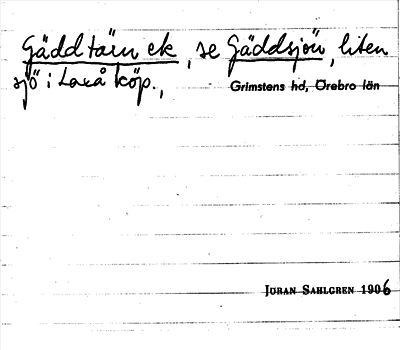 Gäddtärn ek, se Gäddsjön, liten
sjö i Laxå köp.,
Grimstens hd, Örebro län
Jöran Sahlgren 1906